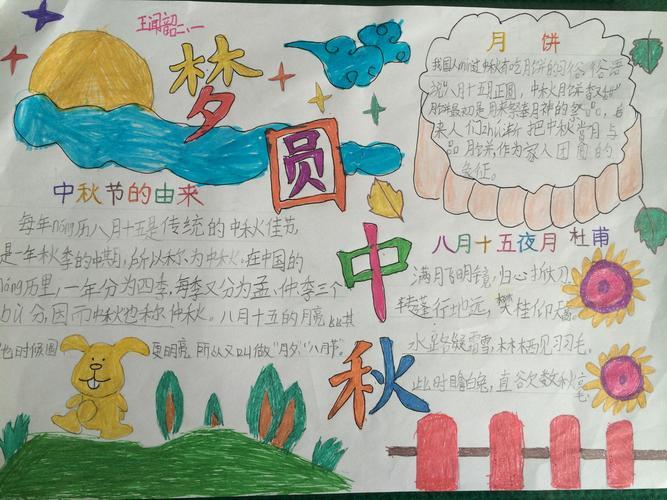 王闻韶二、一
梦圆中秋
月饼
我国人们过中秋有吃月饼的习俗俗语
说"八月十五月正圆，中秋月饼
月饼最初是用来祭奉月神的祭品，后
来人们功心渐把中秋赏月与
品月饼,作为家人团圆的
象征。
中秋节的由来
每年nóng历八月十五是传统的中秋佳节
是一年秋季的中期,所以称为中秋。在中国的
nóng历里,一年分为四季,每季又分为孟、仲、季三个
bù分,因而中秋也称仲秋。八月十五的月亮比其
他时候圆
更明亮,所以又叫做"月夕","八月节"。
八月十五夜月 杜甫
满月飞明镜,归心折大刀
转蓬行地远,攀桂仰天高。
水路疑霜雪,林栖见羽毛,
此时瞻白兔,直欲数秋毫